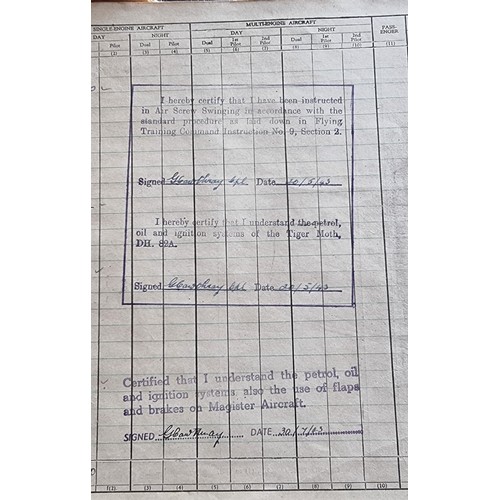 SINGLE-ENGINE AIRCRAFT MULTI-ENGINE AIRCRAFT PASS-
DAY NIGHT DAY NIGHT ENGER
Pilot Dual Pilot Dual 1st Pilot 2nd Pilot Dual 1st Pilot 2nd Pilot
(2) (3) (4) (5) (6) (7) (8) (9) (10) (11)
I hereby certify that I have been instructed
in Air Screw Swinging in accordance with the
standard procedure as laid down in Flying
Training Command Instruction No. 9, Section 2.
Signed Cpl Date 20/5/43
I hereby certify that I understand the petrol,
oil and ignition systems of the Tiger Moth,
DH. 82A.
Signed Cpl Date 20/5/43
Certified that I understand the petrol, oil
and ignition systems, also the use of flaps
and brakes on Magister Aircraft.
SIGNED DATE 30/7/43
(2) (3) (4) (5) (6) (7) (8) (9) (10)